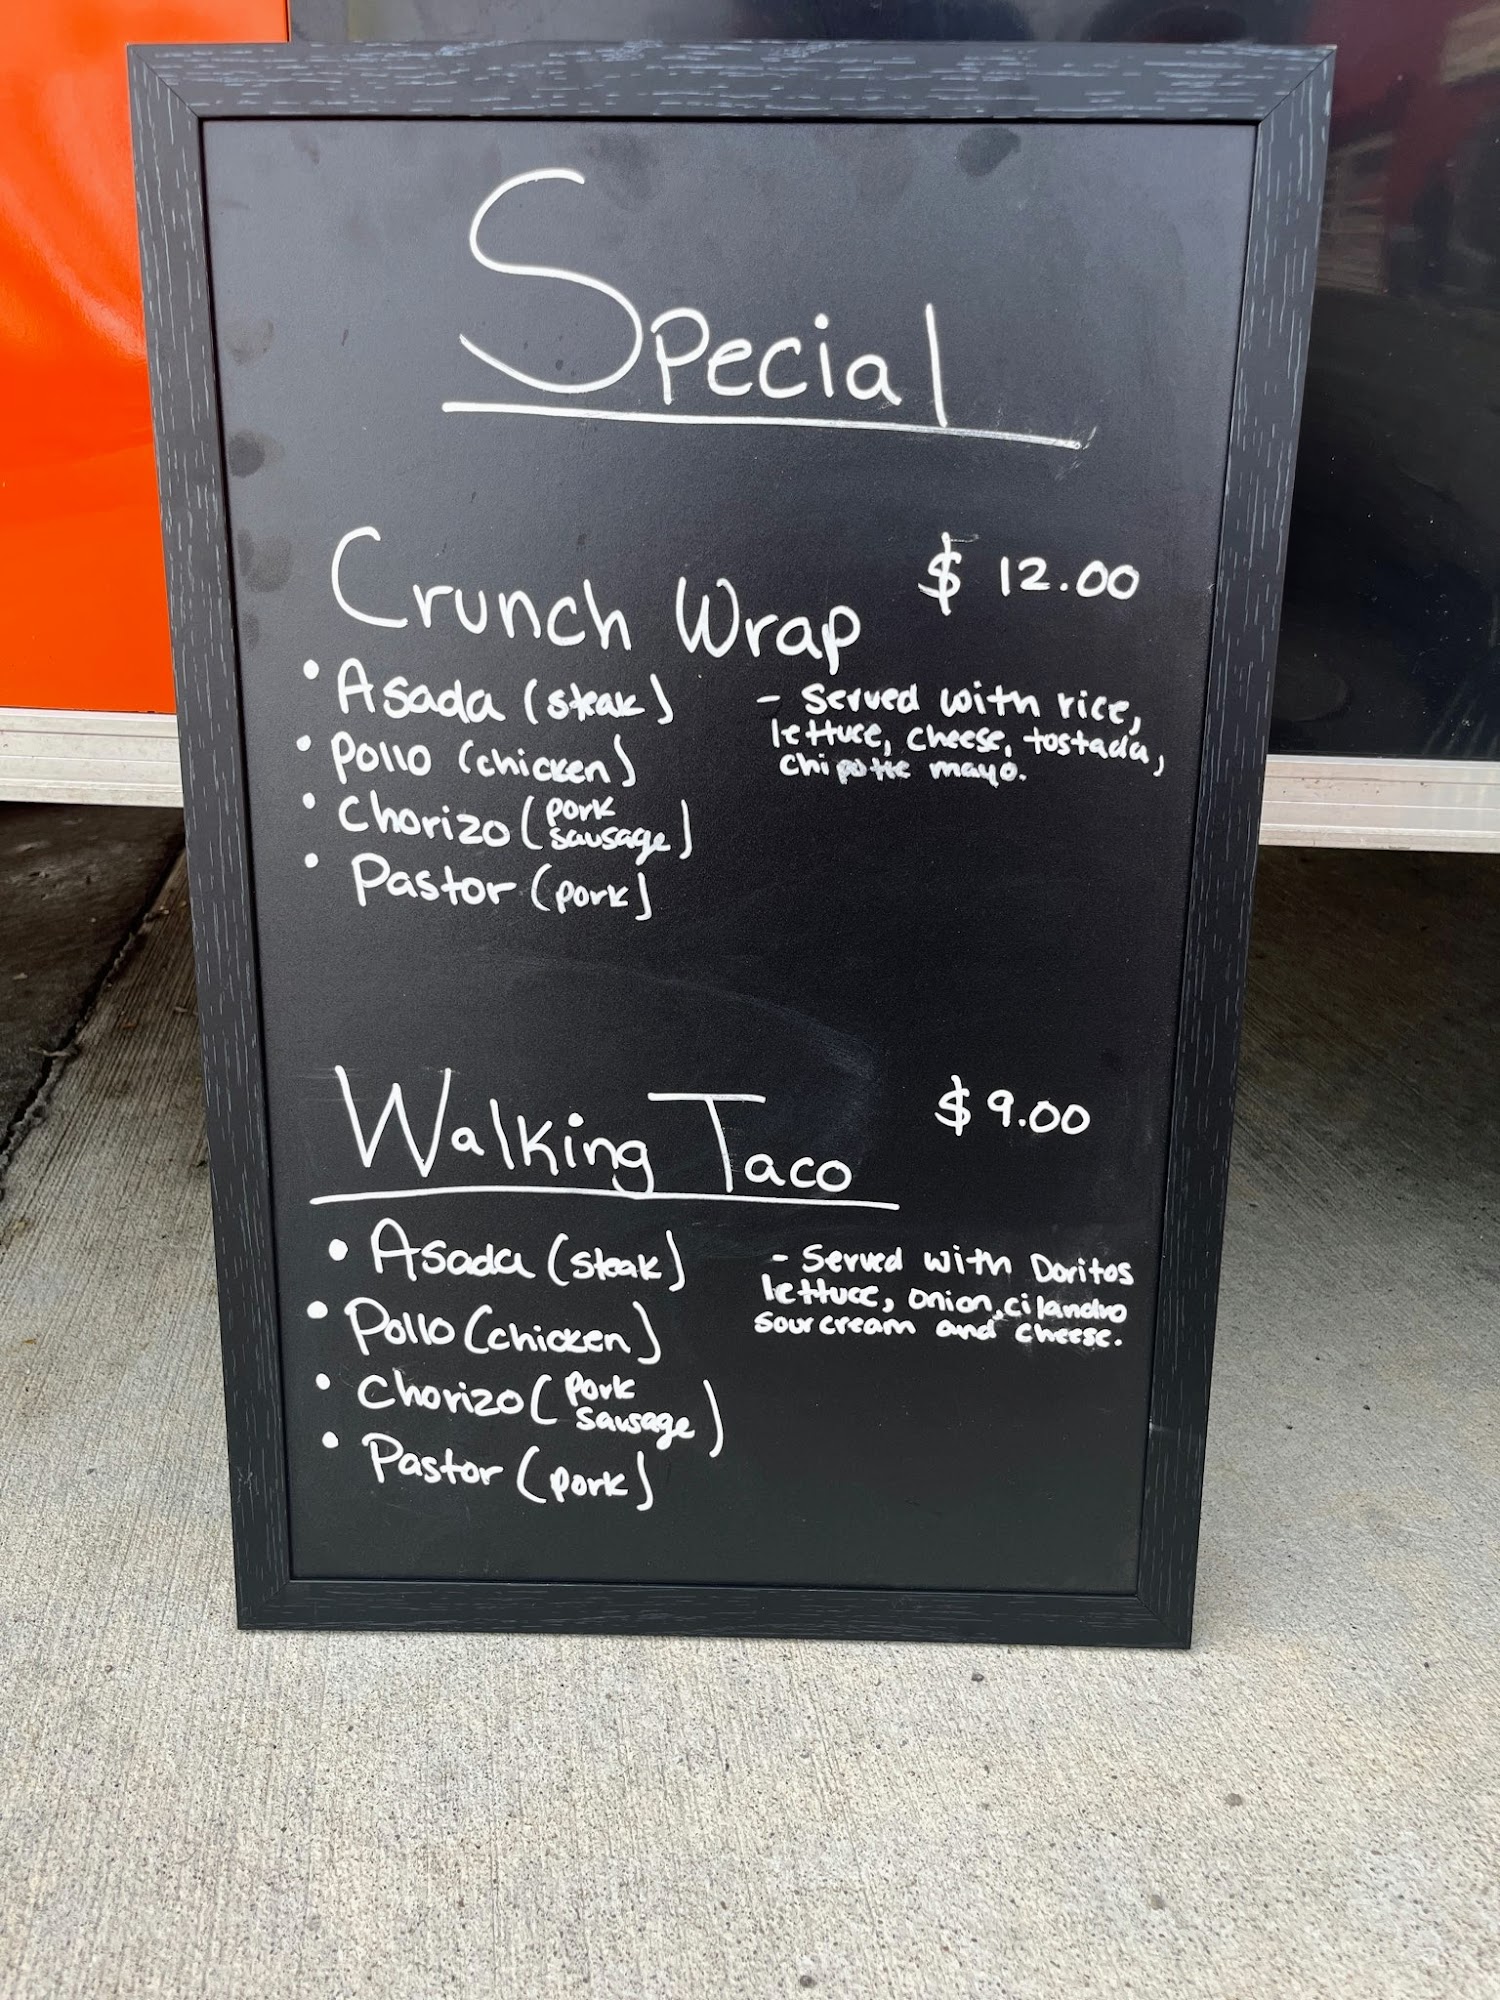 Special
Crunch Wrap $ 12.00
• Asada (steak)
• Pollo (chicken)
• Chorizo (pork sausage)
• Pastor (pork)
- Served with rice,
lettuce, cheese, tostada,
chipotle mayo.
Walking Taco $ 9.00
• Asada (steak)
• Pollo (chicken)
• Chorizo (pork sausage)
• Pastor (pork)
- Served with Doritos
lettuce, onion, cilandro
sour cream and cheese.